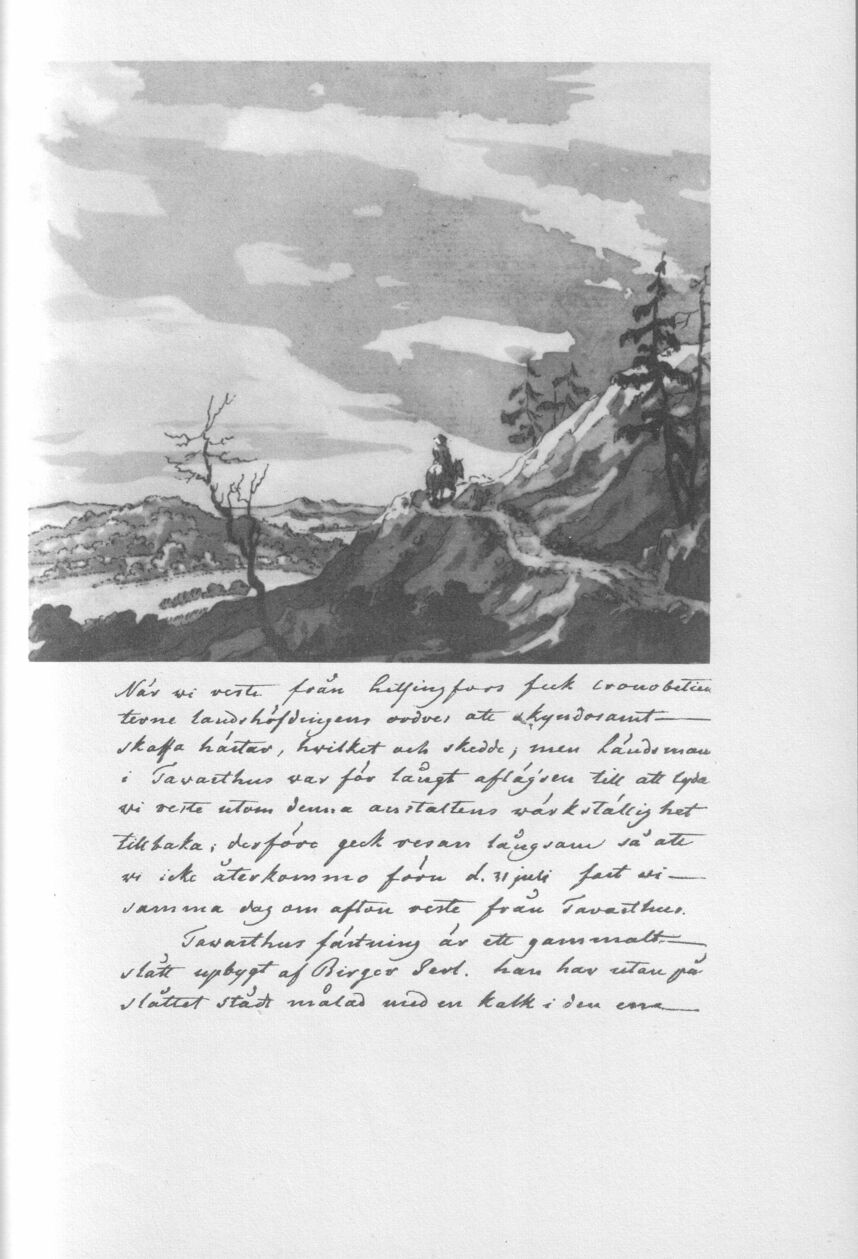 När wi reste från helsingfors feck cronobetien
terne landshöfdingens ordres att skyndosamt
skaffa hästar, hwilket och skedde; men Ländsman
i Tavasthus war för långt aflägsen till att lyda
wi reste utom denna anstaltens wärkställighet
tillbaka; derföre geck resan långsam så att
wi icke återkommo förn d. 31 juli fast wi
samma dag om afton reste från Tavasthus.
Tawasthus fästning är ett gammalt
slått upbygt af Birger Jerl. han har utan på
slåttet ståd målad med en kalk i den ena